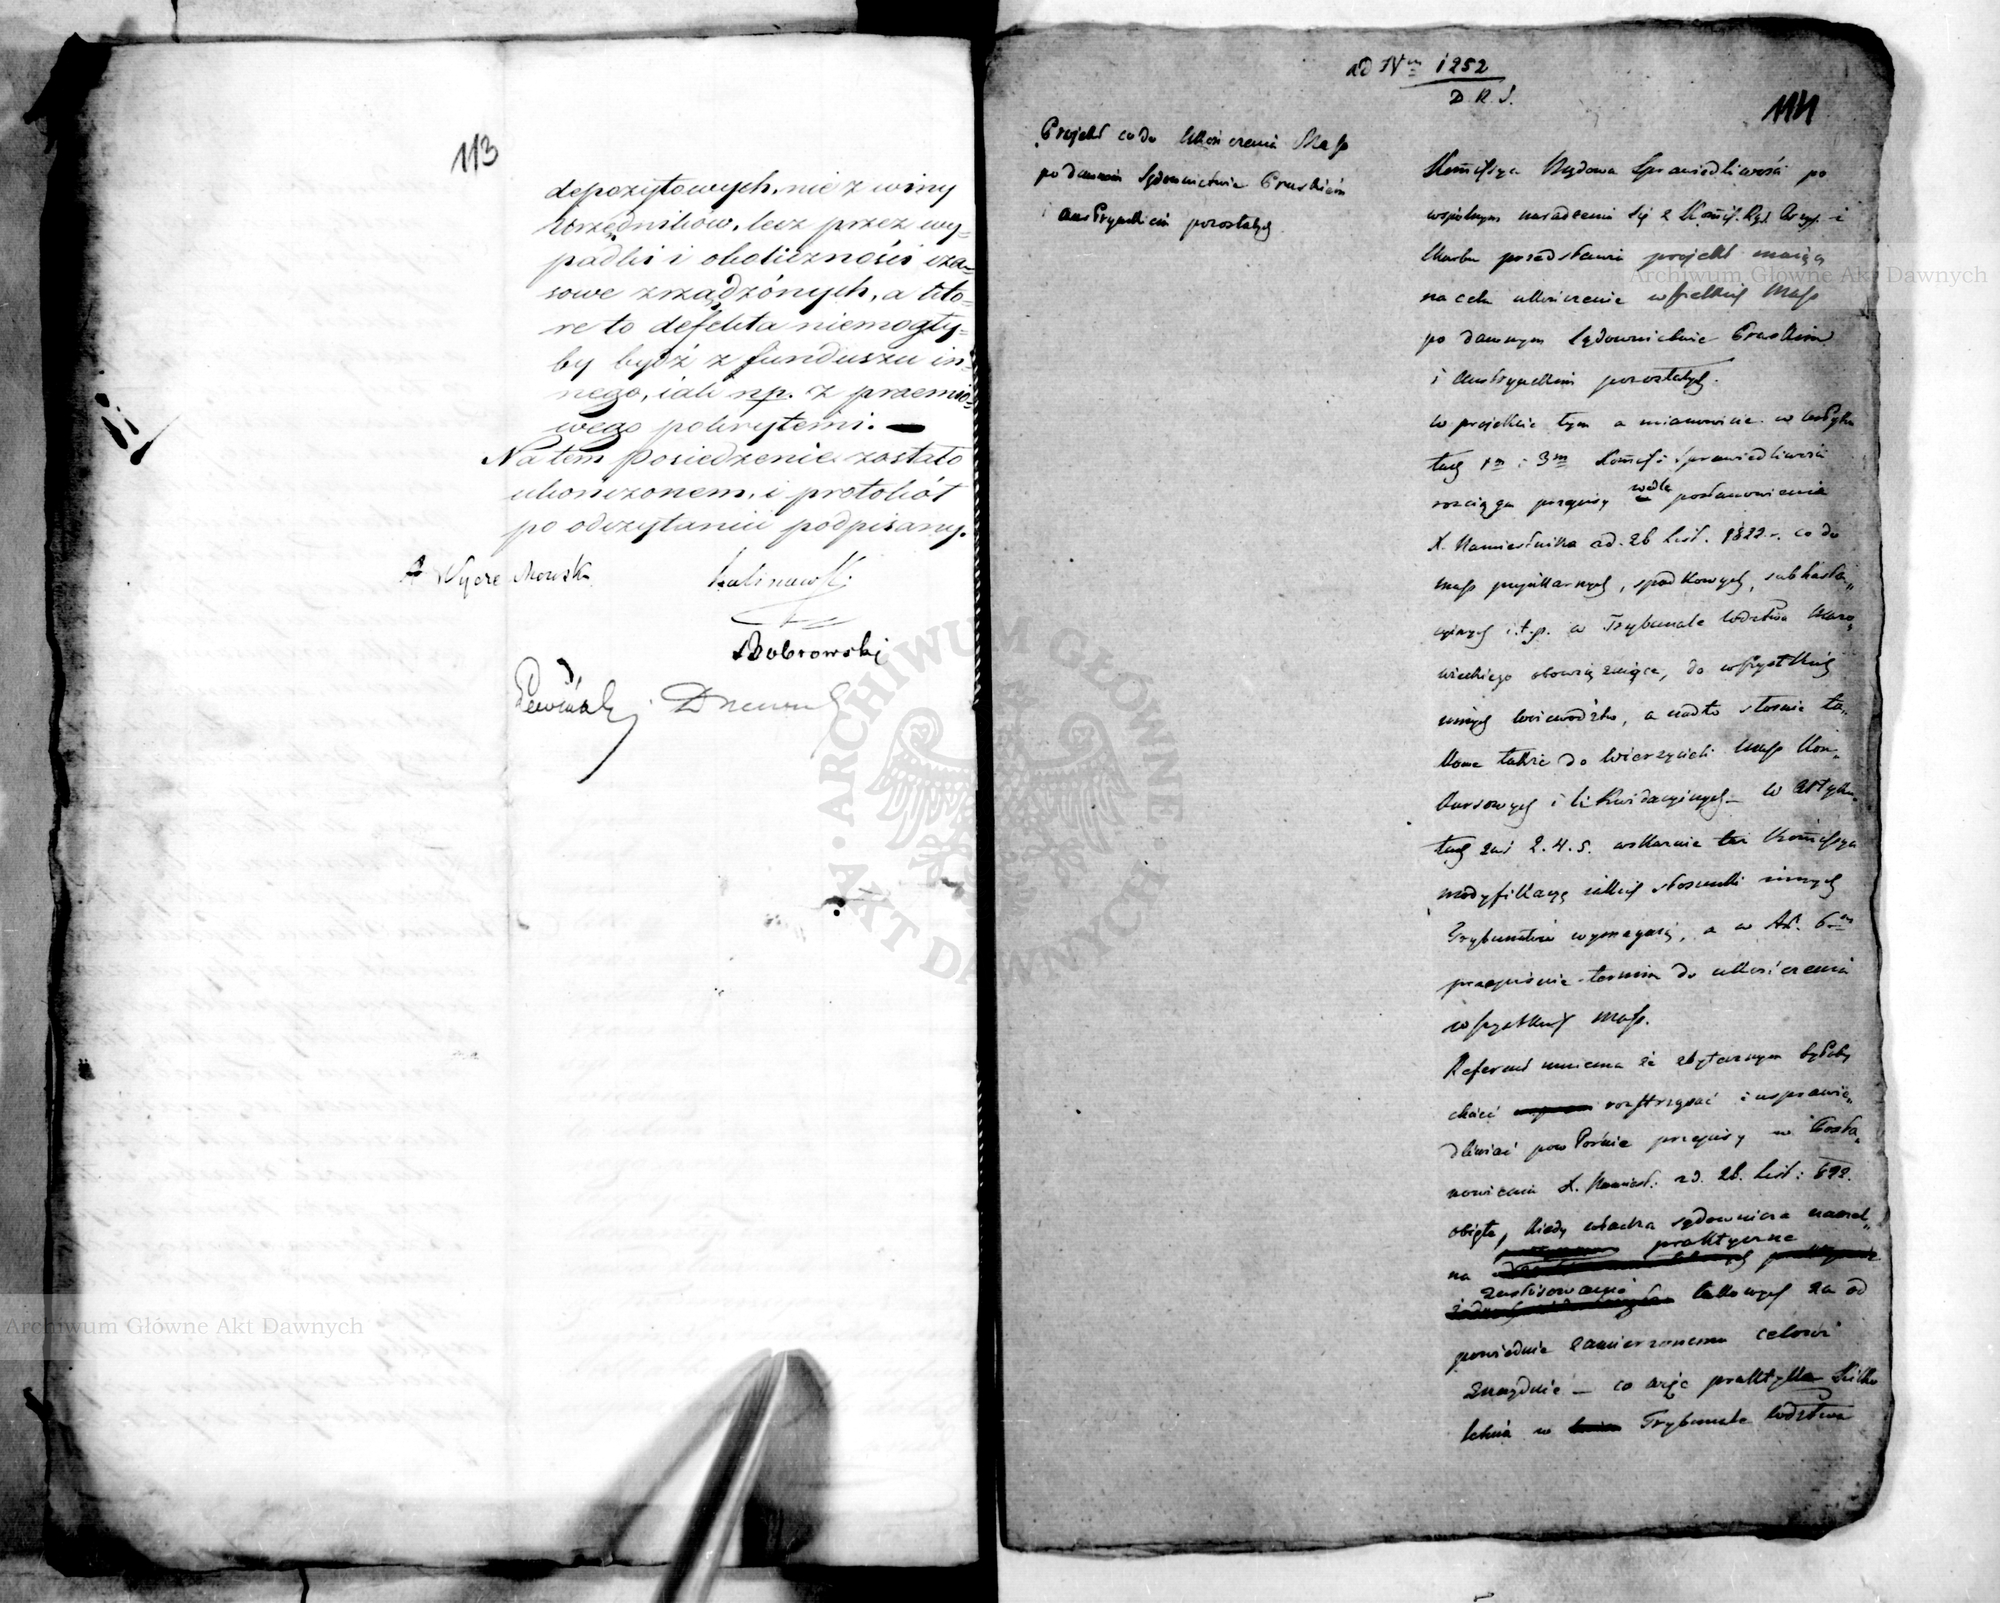 113
depozytowych, nie z winy
Urzędników, lecz przez wy-
padki i okoliczności cza-
sowe zrządzonych, a któ-
re to defekta niemogły-
by bydź z funduszu in-
nego, iak np. z praemio-
wego pokrytemi. —
Na tem posiedzenie zostało
ukonczonem, i protokół
po odczytaniu podpisany.
Kalinowski
Dobrowski
ad Nrm 1252
D. R. S.
114
Projekt co do ukończenia Mass
po dawném Sądownictwie Pruskiém
i Austryackiém pozostałych
Kommissya Rządowa Sprawiedliwości po
wspólnym naradzeniu się z Kommis. Rząd. Przych. i
Skarbu przedstawia projekt maiący
na celu ukończenie wszelkich Mass
po dawnym Sądownictwie Pruskim
i Austryackim pozostałych.
W projekcie tym a mianowicie w Artyku
łach 1m i 3m Kommissya Sprawiedliwości
rozciąga przepisy wedle postanowienia
X. Namiestnika od. 26 List. 1822 r. co do
mass pupillarnych, spadkowych, subhasta„
cyinych i t. p. w Trybunale Wodztwa Mazo„
wieckiego obowiązuiące, do wszystkich
innych Woiewództw, a nadto stosuie ta„
kowe także do Wierzycieli Mass Kon„
kursowych i likwidacyinych – w Artyku„
łach zaś 2. 4. 5. wskazuie taż Kommissya
modyfikacye iakich stosunki innych
Trybunałów wymagaią, a w Art. 6m
przepisuie termin do ukończenia
wszystkich Mass.
Referent mniema że zbytecznym byłoby
chcieć rozstrząsać i usprawie„
dliwiać powtórnie przepisy w Posta„
nowieniu X. Namiest: z d. 26. List: 822.
obięte, kiedy władza sądownicza naczel„
na praktyczne
zastósowanie takowych za od
powiednie zamierzonemu celowi
znayduie – co więc praktyka kilko
letnia w Trybunale Wodztwa
Archiwum Główne Akt Dawnych
Archiwum Główne Akt Dawnych
ARCHIWUM GŁÓWNE AKT DAWNYCH